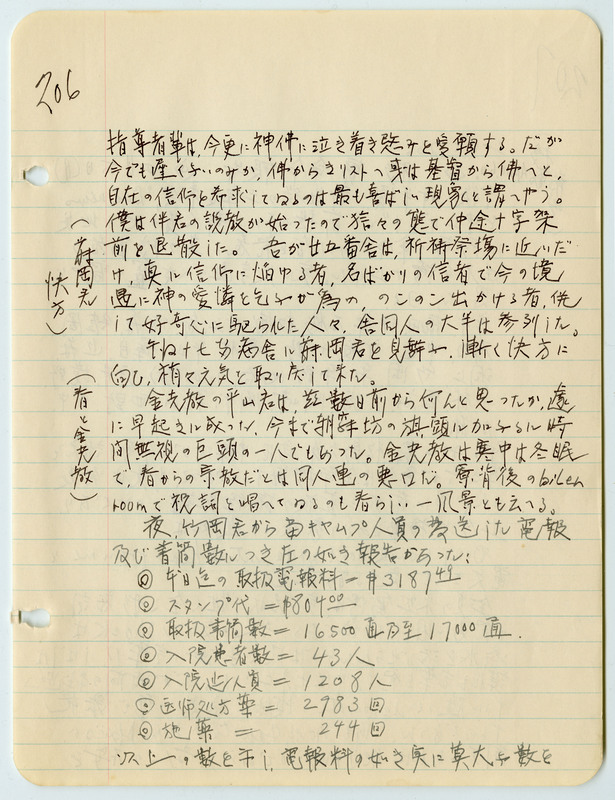 206
指導者輩は、今更に神佛に泣き着き恵みを愛願する。だが
今でも遅くないのみか、佛からキリストへ或は基督から佛へと、
自在の信仰を希求してゐるのは最も喜ばしい現象と謂へやう。
僕は伴君の説教が始ったので 態で仲途十字架
前を退散した。 吾が廿五番舎は、祈祷祭場に近いだ
け、真に信仰に焔ゆる者、名ばかりの信者で今の境
遇に神の愛憐を乞ふが為の、のこのこ出かける者、併
して好奇心に駆られた人々、舎同人の大半は参列した。
午后十七 病舎に藤岡君を見舞ふ、漸く快方に
向ひ、稍々元気を取り戻して来た。
金光教の平山君は、茲数日前から何んと思ったか、遽
に早起きに成った、今まで朝寝坊の旗頭にカテゝ加に時
間無視の巨頭の一人でもあった。金光教は寒中は冬眠
で、春からの宗教だとは同人連の悪口だ。寮背後のboiler
roomで祝詞を唱へてゐるのも春らしい一風景とも云へる。
夜、竹岡君から当キャムプ人員の発送した電報
及び書簡数につき左の如き報告があった:
◎ 本日迄の取扱電報料=$3187.49
◎ スタンプ代=$804.00
◎ 取扱書簡数= 16500通乃至17000通.
◎ 入院患者数= 43人
◎ 入院延人員= 1208人
◎ 医師処方薬= 2983回
◎ 施薬= 244回
以上の数を示し、電報料の如き実に莫大な数を
(藤岡君 快方)
(春と金光教)